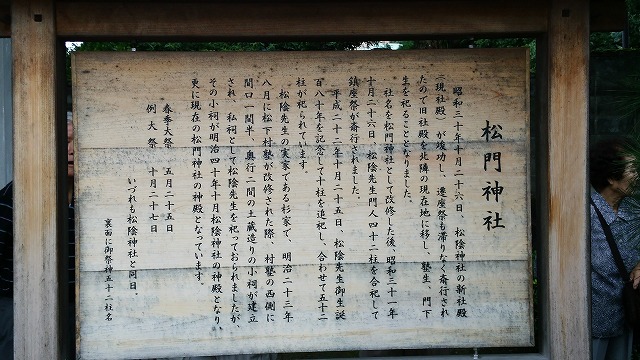 松門神社
昭和三十年十月二十六日、松陰神社の新社殿
(現社殿)が竣功し、遷座祭も滞りなく斎行され
たので旧社殿を北隣の現在地に移し、塾生、門下
生を祀ることとなりました。
社名を松門神社として改修した後、昭和三十一年
十月二十六日、松陰先生門人四十二柱を合祀して
鎮座祭が斎行されました。
平成二十二年十月二十五日、松陰先生御生誕
百八十年を記念して十柱を追祀し、合わせて五十二
柱が祀られています。
松陰先生の実家である杉家で、明治二十三年
八月に松下村塾が改修された際、村塾の西側に
間口一間半 奥行二間の土蔵造りの小祠が建立
され、私祠として松陰先生を祀っておられましたが、
その小祠が明治四十年十月松陰神社の神殿となり、
更に現在の松門神社の神殿となっています。
春季大祭 五月二十五日
例大祭 十月二十七日
いづれも松陰神社と同日。
裏面に御祭神五十二柱名